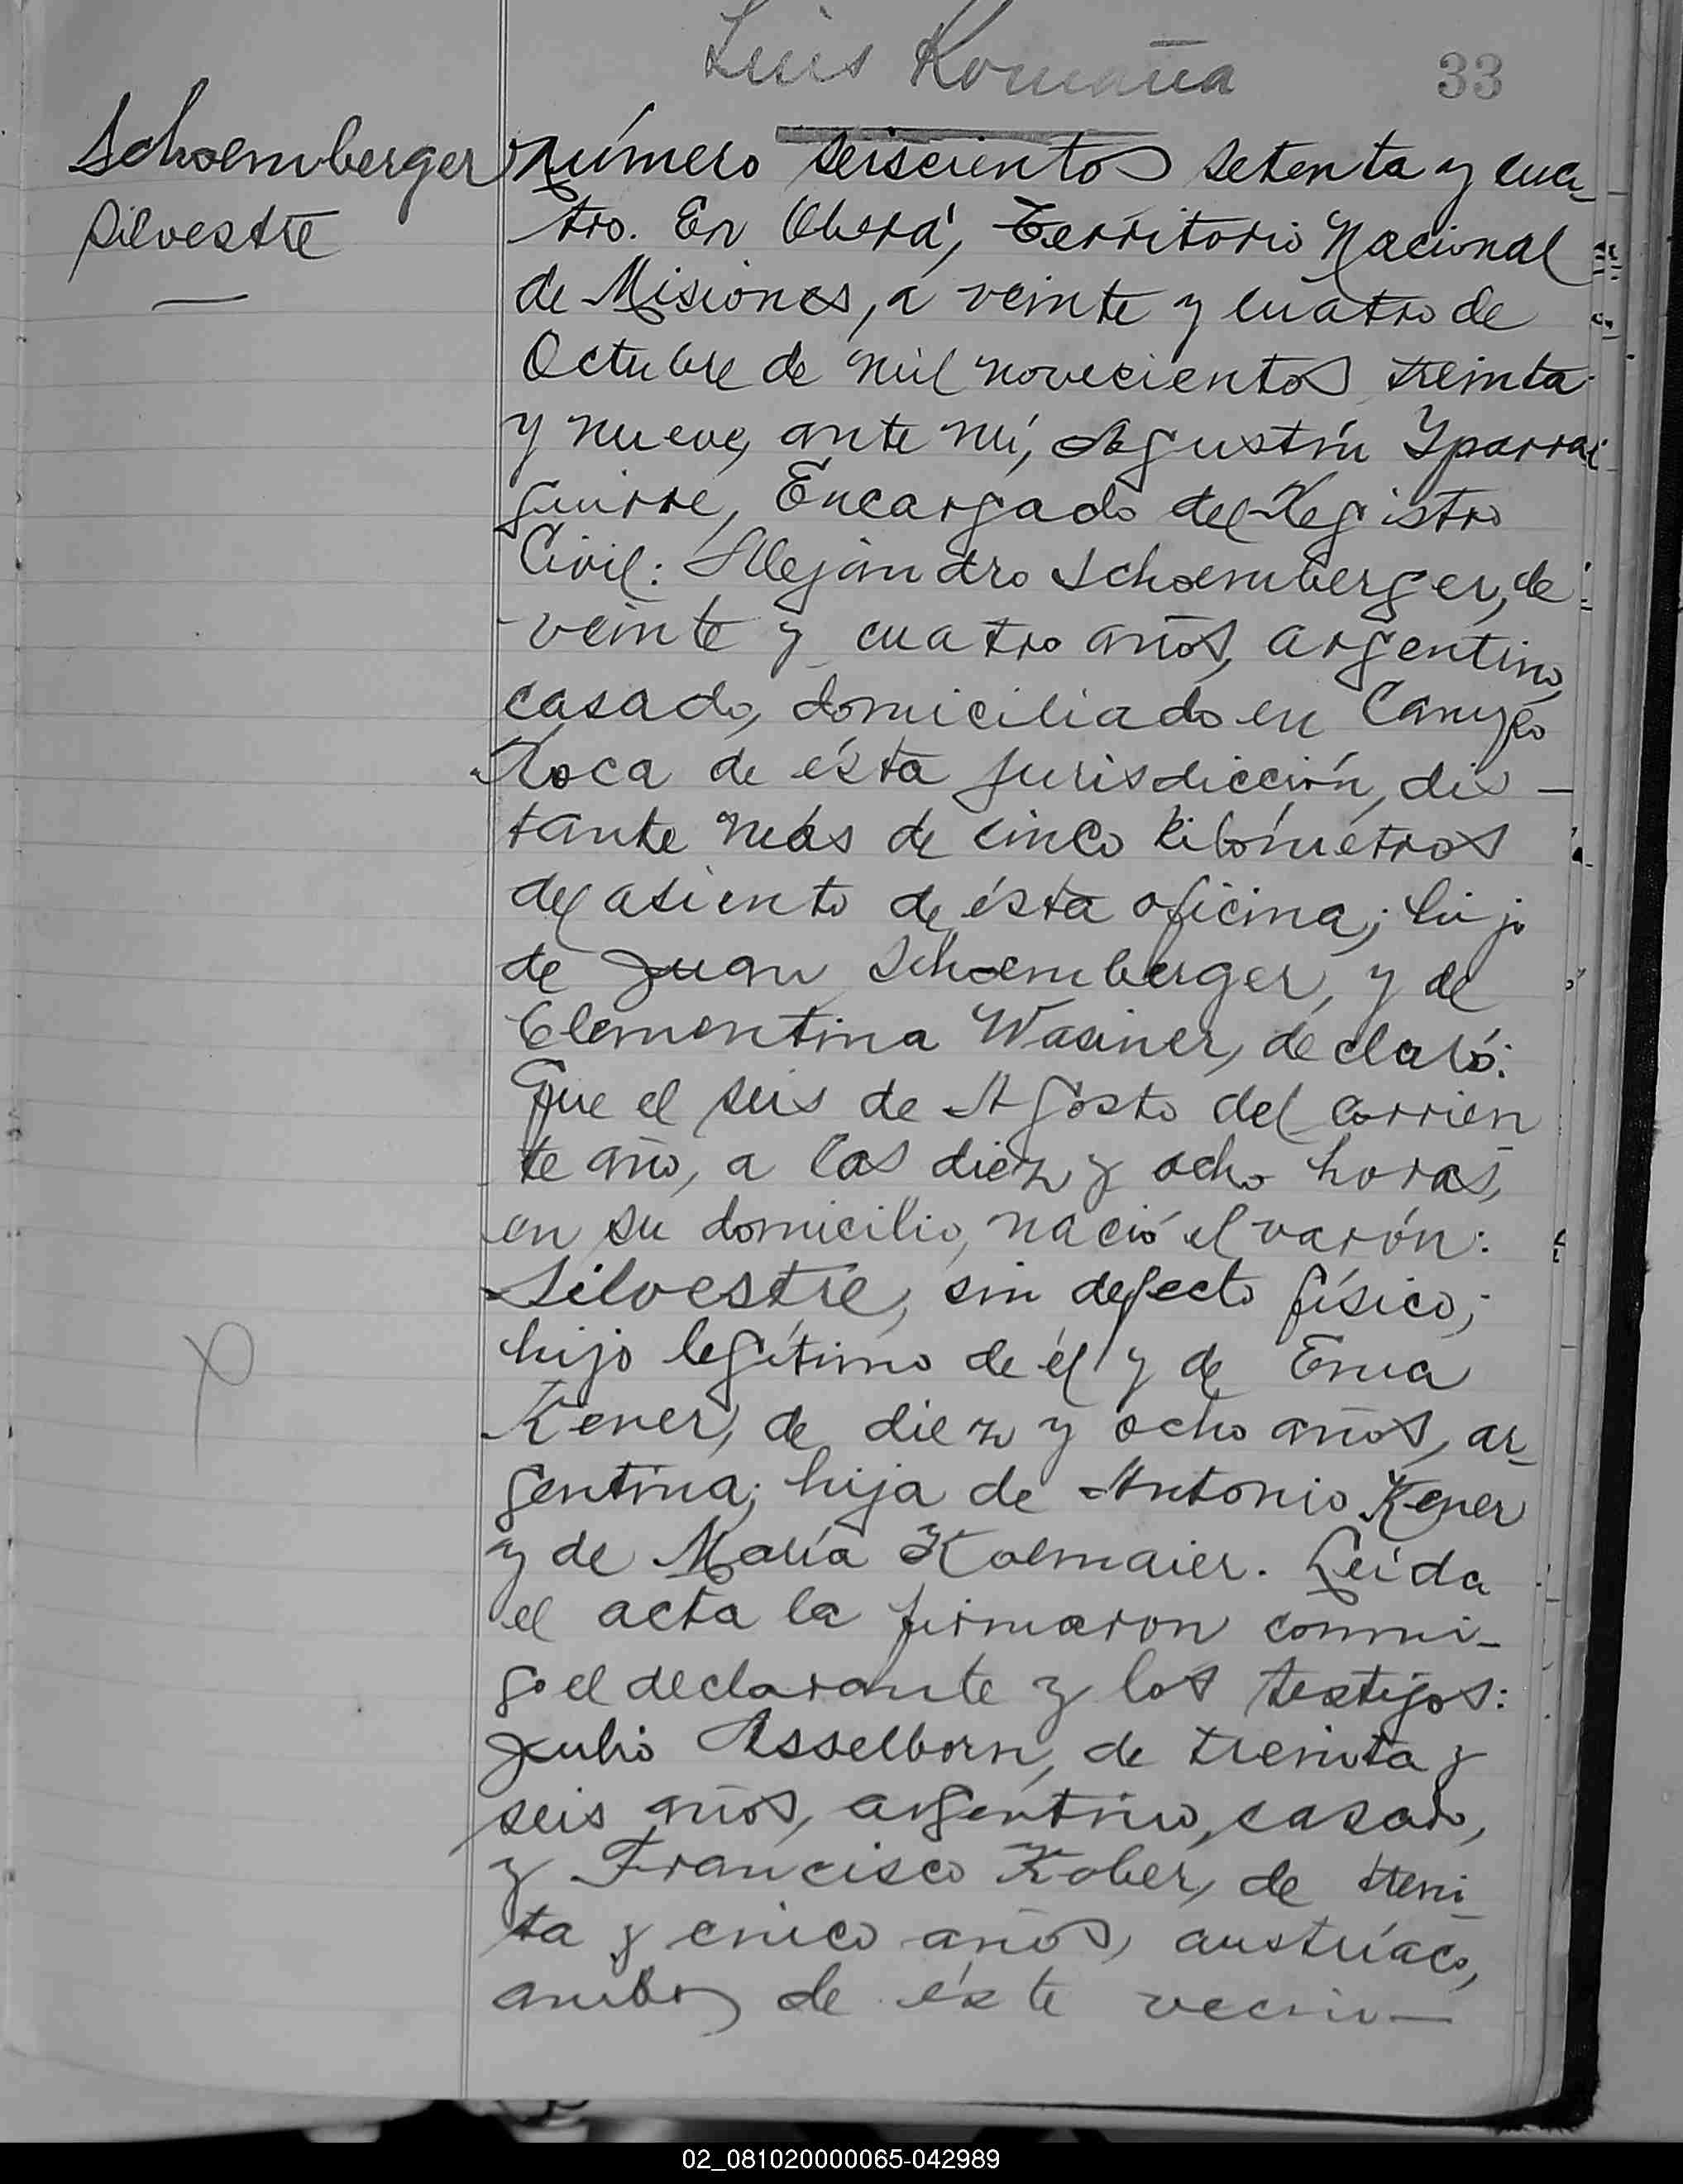 Luis Romaña
33
Schoemberger
Silvestre
Número seiscientos setenta y cua-
tro. En Oberá, Territorio Nacional
de Misiones, a veinte y cuatro de
Octubre de mil novecientos treinta
y nueve, ante mí, Agustín Yparra-
guirre, Encargado del Registro
Civil: Alejandro Schoemberger, de
veinte y cuatro años, argentino,
casado, domiciliado en Campo
Roca de ésta jurisdicción, dis-
tante más de cinco kilómetros
del asiento de ésta oficina; hijo
de Juan Schoemberger, y de
Clementina Wasiner, declaró:
Que el seis de Agosto del corrien
te año, a las diez y ocho horas,
en su domicilio, nació el varón:
Silvestre, sin defecto físico;
hijo legítimo de él y de Ema
Kener, de diez y ocho años, ar-
gentina; hija de Antonio Kener
y de María Kolmaier. Leída
el acta la firmaron conmi-
go el declarante y los testigos:
Julio Asselborn, de treinta y
seis años, argentino, casado,
y Francisco Kober, de trein
ta y cinco años, austríaco,
ambos de éste vecin-
02_081020000065-042989